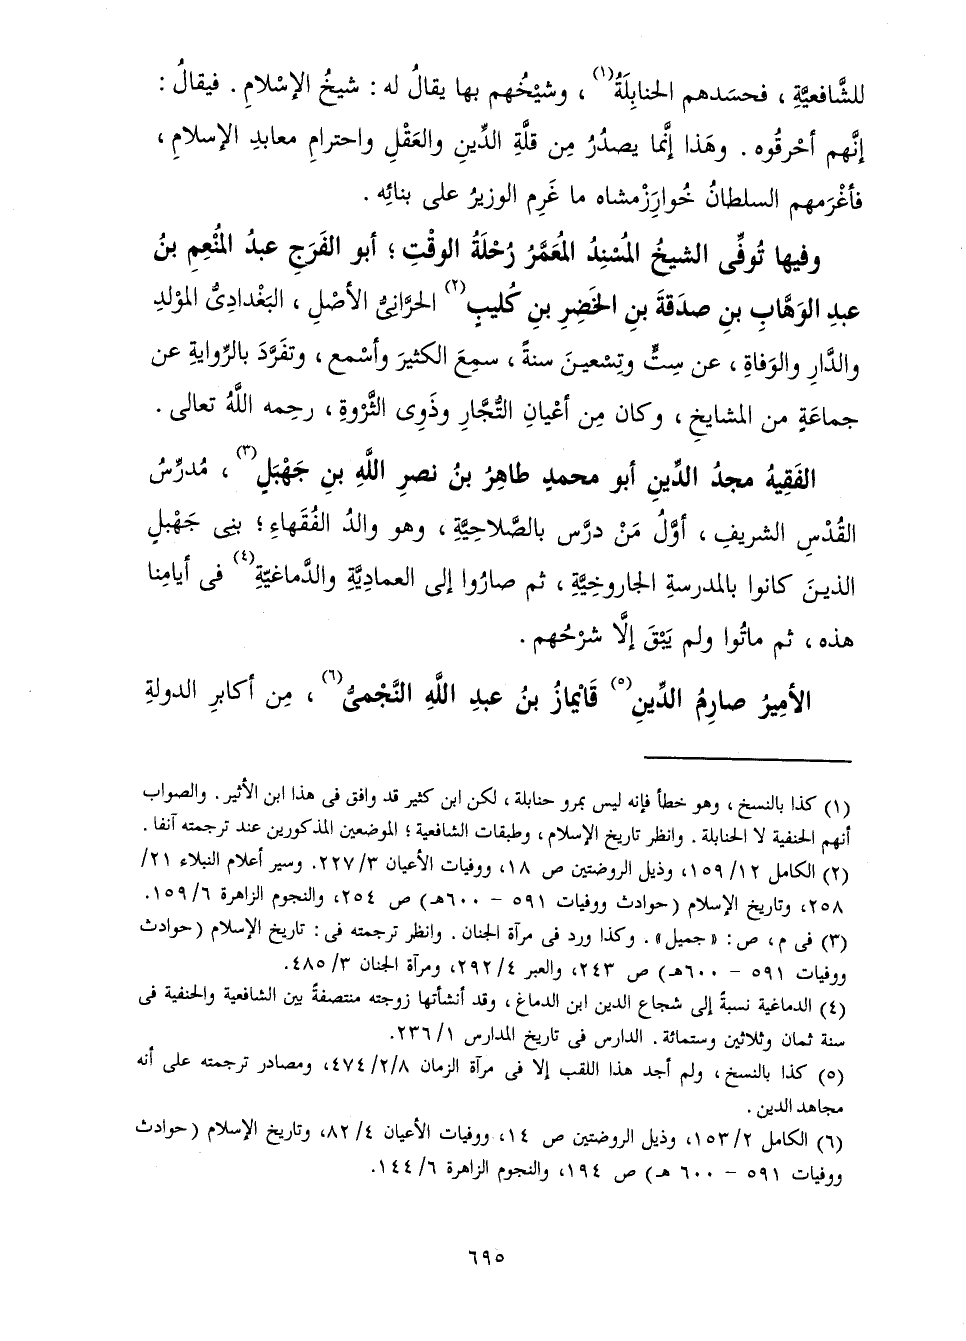 للشَّافعيَّةِ ، فحسَدهم الحنابِلَةُ(١) ، وشيْخُهم بها يقالُ له : شيخُ الإسْلامِ . فيقالُ :
إنَّهم أحْرقُوه . وهَذا إنَّما يصدُرُ مِن قلَّةِ الدِّينِ والعَقْلِ واحترامِ معابدِ الإسلامِ ،
فأغْرَمهم السلطانُ خُوارَزْمشاه ما غَرِم الوزيرُ على بنائِه .
وفيها تُوفِّى الشيخُ المُسْنِدُ المُعَمَّرُ رُحْلَةُ الوقْتِ ؛ أبو الفَرَجِ عبدُ المُنْعِمِ بنُ
عبدِ الوَهَّابِ بنِ صدَقةَ بنِ الخَضِرِ بنِ كُليبٍ(٢) الحَرَّانِىُّ الأصْلِ ، البَغْدادِىُّ المؤلدِ
والدَّارِ والوَفاةِ ، عن سِتٍّ وتِسْعينَ سنةً ، سمِعَ الكثيرَ وأسْمع ، وتفَرَّدَ بالرِّوايةِ عن
جماعَةٍ من المشايخِ ، وكان مِن أعْيانِ التُّجَّارِ وذَوِى الثَّرْوةِ ، رحِمه اللَّهُ تعالى .
الفَقِيهُ مجدُ الدِّينِ أبو محمدٍ طاهِرُ بنُ نصرِ اللَّهِ بنِ جَهْبَلٍ(٣) ، مُدرِّسُ
القُدْسِ الشريفِ ، أوَّلُ مَنْ درَّس بالصَّلاحيَّةِ ، وهو والدُ الفُقَهاءِ ؛ بنِى جَهْبلٍ
الذينَ كانوا بالمدرسةِ الجاروخِيَّةِ ، ثم صارُوا إلى العماديَّةِ والدَّماغيّةِ(٤) فى أيامِنا
هذه ، ثم ماتُوا ولم يَبْقَ إلَّا شرْحُهم .
الأمِيرُ صارِمُ الدِّينِ(٥) قَايْمازُ بنُ عبدِ اللَّهِ النَّجْمىُّ(٦) ، مِن أكابرِ الدولةِ
(١) كذا بالنسخ ، وهو خطأ فإنه ليس بمرو حنابلة ، لكن ابن كثير قد وافق فى هذا ابن الأثير . والصواب
أنهم الحنفية لا الحنابلة . وانظر تاريخ الإسلام ، وطبقات الشافعية ؛ الموضعين المذكورين عند ترجمته آنفا .
(٢) الكامل ١٢/ ١٥٩، وذيل الروضتين ص ١٨، ووفيات الأعيان ٣/ ٢٢٧. وسير أعلام النبلاء ٢١/
٢٥٨، وتاريخ الإسلام (حوادث ووفيات ٥٩١ - ٦٠٠هـ) ص ٢٥٤، والنجوم الزاهرة ٦/ ١٥٩.
(٣) فى م ، ص : «جميل» . وكذا ورد فى مرآة الجنان . وانظر ترجمته فى : تاريخ الإسلام (حوادث
ووفيات ٥٩١ - ٦٠٠هـ) ص ٢٤٣، والعبر ٤/ ٢٩٢، ومرآة الجنان ٣/ ٤٨٥.
(٤) الدماغية نسبةً إلى شجاع الدين ابن الدماغ ، وقد أنشأتها زوجته منتصفةً بين الشافعية والحنفية فى
سنة ثمان وثلاثين وستمائة . الدارس فى تاريخ المدارس ١/ ٢٣٦.
(٥) كذا بالنسخ ، ولم أجد هذا اللقب إلا فى مرآة الزمان ٨/ ٢/ ٤٧٤، ومصادر ترجمته على أنه
مجاهد الدين .
(٦) الكامل ٢/ ١٥٣، وذيل الروضتين ص ١٤، ووفيات الأعيان ٤/ ٨٢، وتاريخ الإسلام (حوادث
ووفيات ٥٩١ - ٦٠٠ هـ) ص ١٩٤، والنجوم الزاهرة ٦/ ١٤٤.
٦٩٥